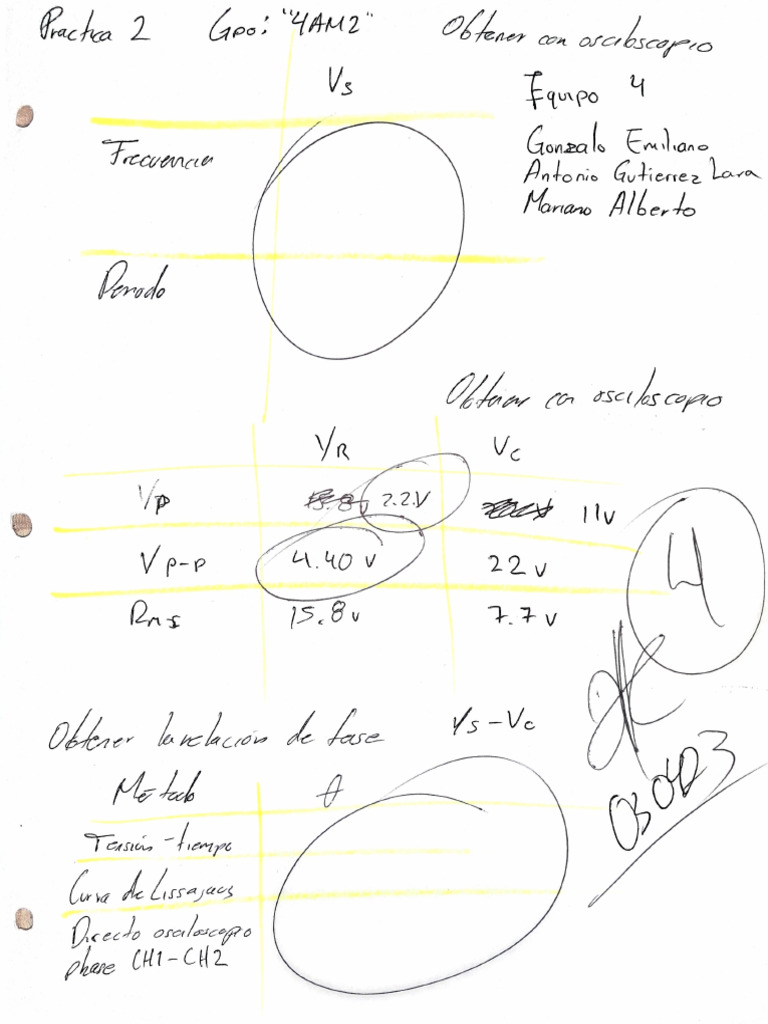 Practica 2 Gpo: "4AM2" Obtener con osciloscopio
Vs
Equipo 4
Frecuencia
Gonzalo Emiliano
Antonio Gutierrez Lara
Mariano Alberto
Periodo
Obtener con osciloscopio
VR Vc
Vp 2.2V 11v
Vp-p 4.40 v 22 v
Rms 15.8v 7.7 v
4
Obtener la relación de fase Vs-Vc
Método θ
Tensión-tiempo
Curva de Lissajous
Directo osciloscopio
phase CH1-CH2